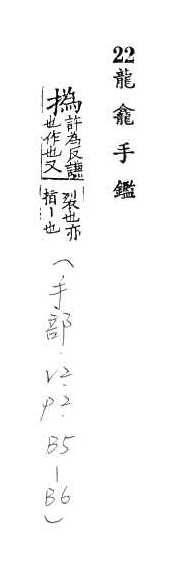 22龍龕手鑑
撝許為反謙
也作也又
裂也亦
指丨也
(手部.V2.P2.B5-B6)